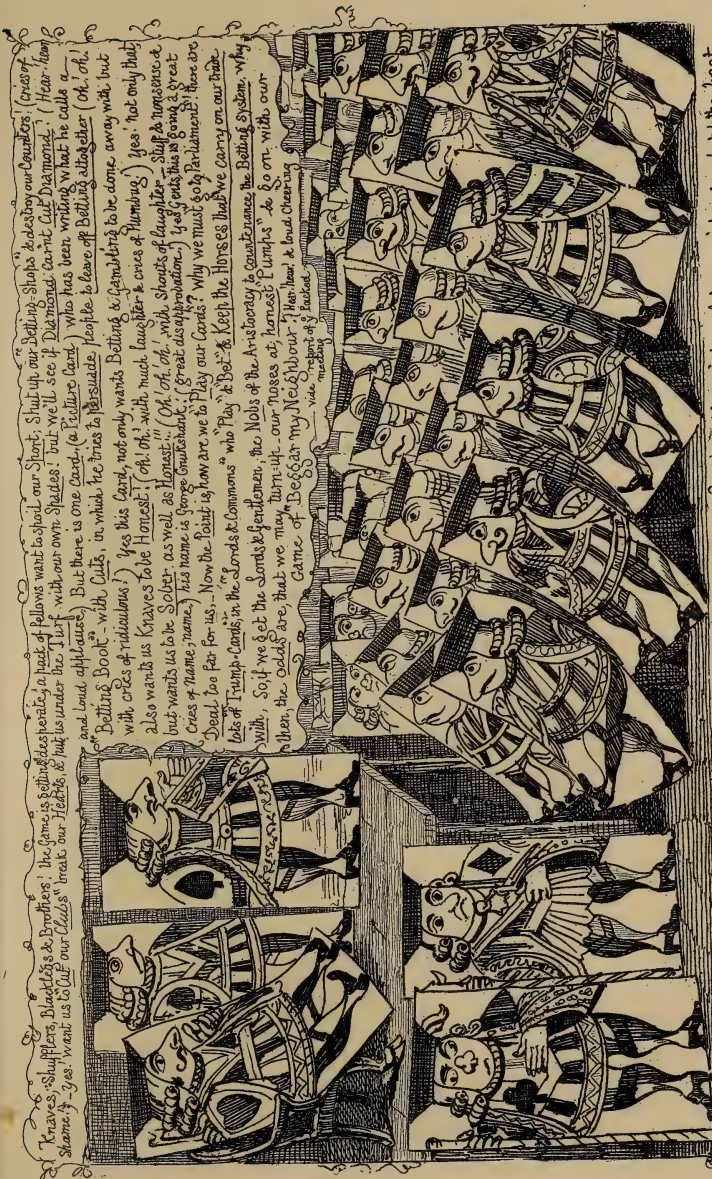 Knaves, "Shufflers, Blacklegs & Brothers! the Game is getting desperate, a pack of fellows want to spoil our Sport; Shut up our Betting-Shops & destroy our Counters, (Cries of
Shame.) - Yes! Want us to "Cut our Clubs" break our Hearts, & put us under the Turf, with our own Spades! but we'll see if Diamond Carnt Cut Diamond! (Hear hear
and loud applause) But there is one Card, (a Picture Card) who has been writing what he calls a
"Betting Book" - with Cuts, in which he tries to Persuade people to leave of Betting altogether (Oh! oh!
with cries of ridiculous!) Yes this Card, not only wants Betting & Gambling to be done away with, but
also wants us Knaves to be Honest! (oh! oh! with much laughter & cries of Humbug) Yes! not only that,
but wants us to be Sober as well as Honest!! (Oh! oh! oh! with Shouts of laughter - Stuff & nonsense &
cries of name, name.) his name is George Cruikshank! (great disapprobation.) Yes Gents, this is going a great
Deal too far for us, - Now the Point is, how are we to "Play our Cards"? Why we must go to Parliament, there are
lots of "Trump-Cards," in the Lords & Commons who "Play" & "Bet" & Keep the Horses that we carry on our trade
with, So if we get the Lords & Gentlemen, the Nobs of the Aristocracy to countenance the Betting System, why
then the odds are, that we may turn up our noses at, honest "Pumps" & go on with our
Game of "Beggar my Neighbour"! Hear, hear! & loud Cheering
vide "report of a Packed
meeting